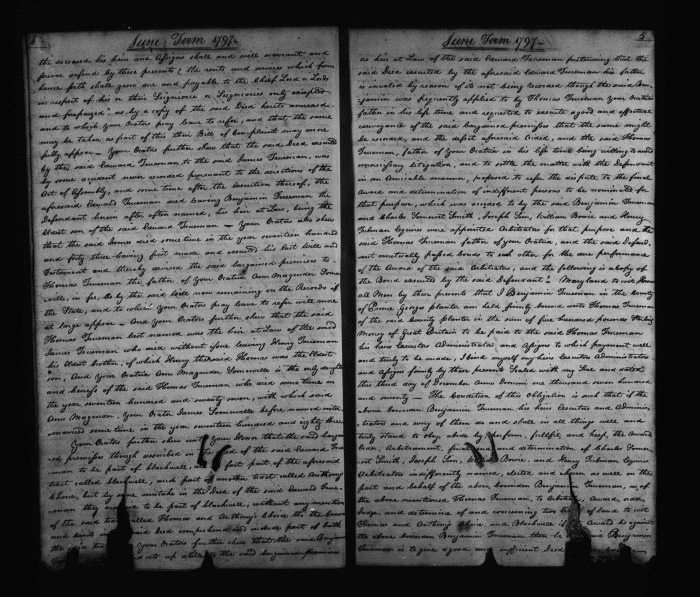 June Term 1797.
the deceased his heirs and Assigns shall and will warrant and
forever defend by these presents (the rents and services which from
hence forth shall grow due and payable to the Chief Lord or Lords
in respect of his or their Signiorie or Signiories only excepted
and foreprized) as by a copy of the said Deed hereto annexed
and to which your Oratrix pray leave to refer, and that the same
may be taken as part of this their Bill of Complaint may more
fully appear — Your Oratrix further shew that the said Deed executed
by the said Edward Trueman to the said James Trueman, was
by some accident never recorded pursuant to the directions of the
Act of Assembly, and some time after the execution thereof, the
aforesaid Edward Trueman died leaving Benjamin Trueman the
Defendant herein after often named, his heir at Law, being the
eldest son of the said Edward Trueman — Your Oratrix also shew
that the said James died some time in the year seventeen hundred
and forty three having first made and executed his last will and
Testament and thereby devised the said bargained premises to
Thomas Trueman the father of your Oratrix Ann Magruder Somervell
in fee, as by the said will now remaining on the Records of
the State, and to which your Oratrix pray leave to refer will more
at large appear — And your Oratrix further shew that the said
Thomas Trueman last named was the heir at Law of the said
James Trueman who died without issue leaving Henry Trueman
his eldest brother, of which Henry the said Thomas was the eldest
son, And your Oratrix Ann Magruder Somervell is the only child
and heiress of the said Thomas Trueman who died some time in
the year seventeen hundred and seventy seven, with which said
Ann Magruder, your Orator James Somervell before named inter
married some time in the year seventeen hundred and eighty three
Your Oratrix further shew unto your Honor that the said bargain
ed premises though described in the Deed of the said Edward True
man to be part of blackwell, are in fact part of the aforesaid
tract called blackwell, and part of another tract called Anthony
Choice, but by some mistake in the Deed of the said Edward True
man they are said to be part of blackwell, without any mention
of the said tract called Thomas and Anthony's Choice tho' the bounds
and limits in the said Deed comprehend and include part of both
the said tracts Your Oratrix further shew that the said Benja
sets up a title to the said bargained premises
5
June Term 1797.
as heir at Law of the said Edward Trueman pretending that the
said Deed executed by the aforesaid Edward Trueman his father
is invalid by reason of its not being recorded though the said Ben
jamin was frequently applied to by Thomas Trueman your Oratrix
father in his life time and requested to execute a good and effectual
conveyance of the said bargained premises that the same might
be recorded, and the defect aforesaid cured, and the said Thomas
Trueman, father of your Oratrix in his life time being willing to avoid
unnecessary litigation, and to settle the matter with the Defendant
in an amicable manner, proposed to refer the dispute to the final
award and determination of indifferent persons to be nominated for
that purpose, which was acceded to by the said Benjamin Trueman
and Charles Somerset Smith, Joseph Sim, William Bowie and Henry
Tubman Esquires were appointed Arbitrators for that purpose and the
said Thomas Trueman father of your Oratrix, and the said Defend
ant mutually passed bonds to each other for the due performance
of the Award of the said Arbitrators, and the following is a copy of
the Bond executed by the said Defendant "Maryland to wit Know
all Men by these presents that I Benjamin Trueman in the County
of Prince Georges planter am held firmly bound unto Thomas Trueman
of the said County planter in the sum of five hundred pounds Sterling
Money of Great Britain to be paid to the said Thomas Trueman
his heirs Executors Administrators and Assigns to which payment well
and truly to be made, I bind myself my heirs Executors Administrators
and Assigns firmly by these presents Sealed with my Seal and dated
this third day of December Anno Domini one thousand seven hundred
and seventy — The Condition of this Obligation is such that if the
above bounden Benjamin Trueman, his heirs Executors and Adminis
trators and every of them do and shall in all things well and
truly stand to obey, abide by, perform, fulfil and keep, the award
Order, Arbitrament, final end and determination of Charles Somer
set Smith, Joseph Sim, William Bowie and Henry Tubman Esquires
Arbitrators indifferently named, elected and chosen as well on the
part and behalf of the above bounden Benjamin Trueman, as of
the above mentioned Thomas Trueman, to Arbitrate, Award, order
Judge and determine of and concerning two tracts of land to wit
Thomas and Anthony's Choice, and Blackwell if the Award be against
the above bounden Benjamin Trueman then he the said Benjamin
Trueman is to give a good and sufficient Deed